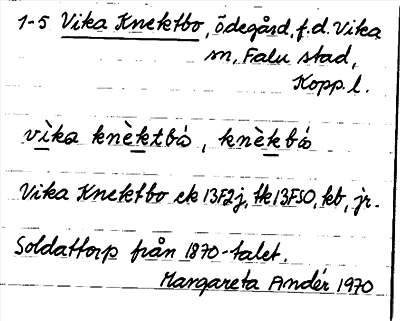 1-5 Vika Knektbo, ödegård, f.d. Vika
sn, Falu stad,
Kopp. l.
vìka knèktbó, knèkbó
Vika Knektbo ek 13F2j, tk 13F50, kb, jr.
Soldattorp från 1870-talet.
Margareta Andér 1970